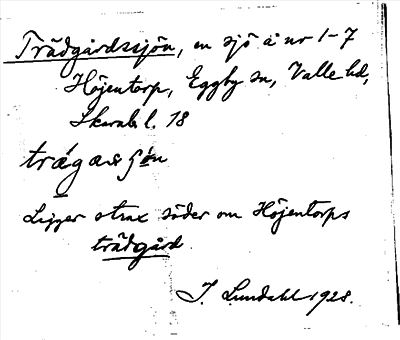 Trädgårdssjön, en sjö å nr 1-7
Höjentorp, Eggby sn, Valle hd,
Skarab. l. 18
Ligger strax söder om Höjentorps
trädgård.
I. Lundahl 1928.